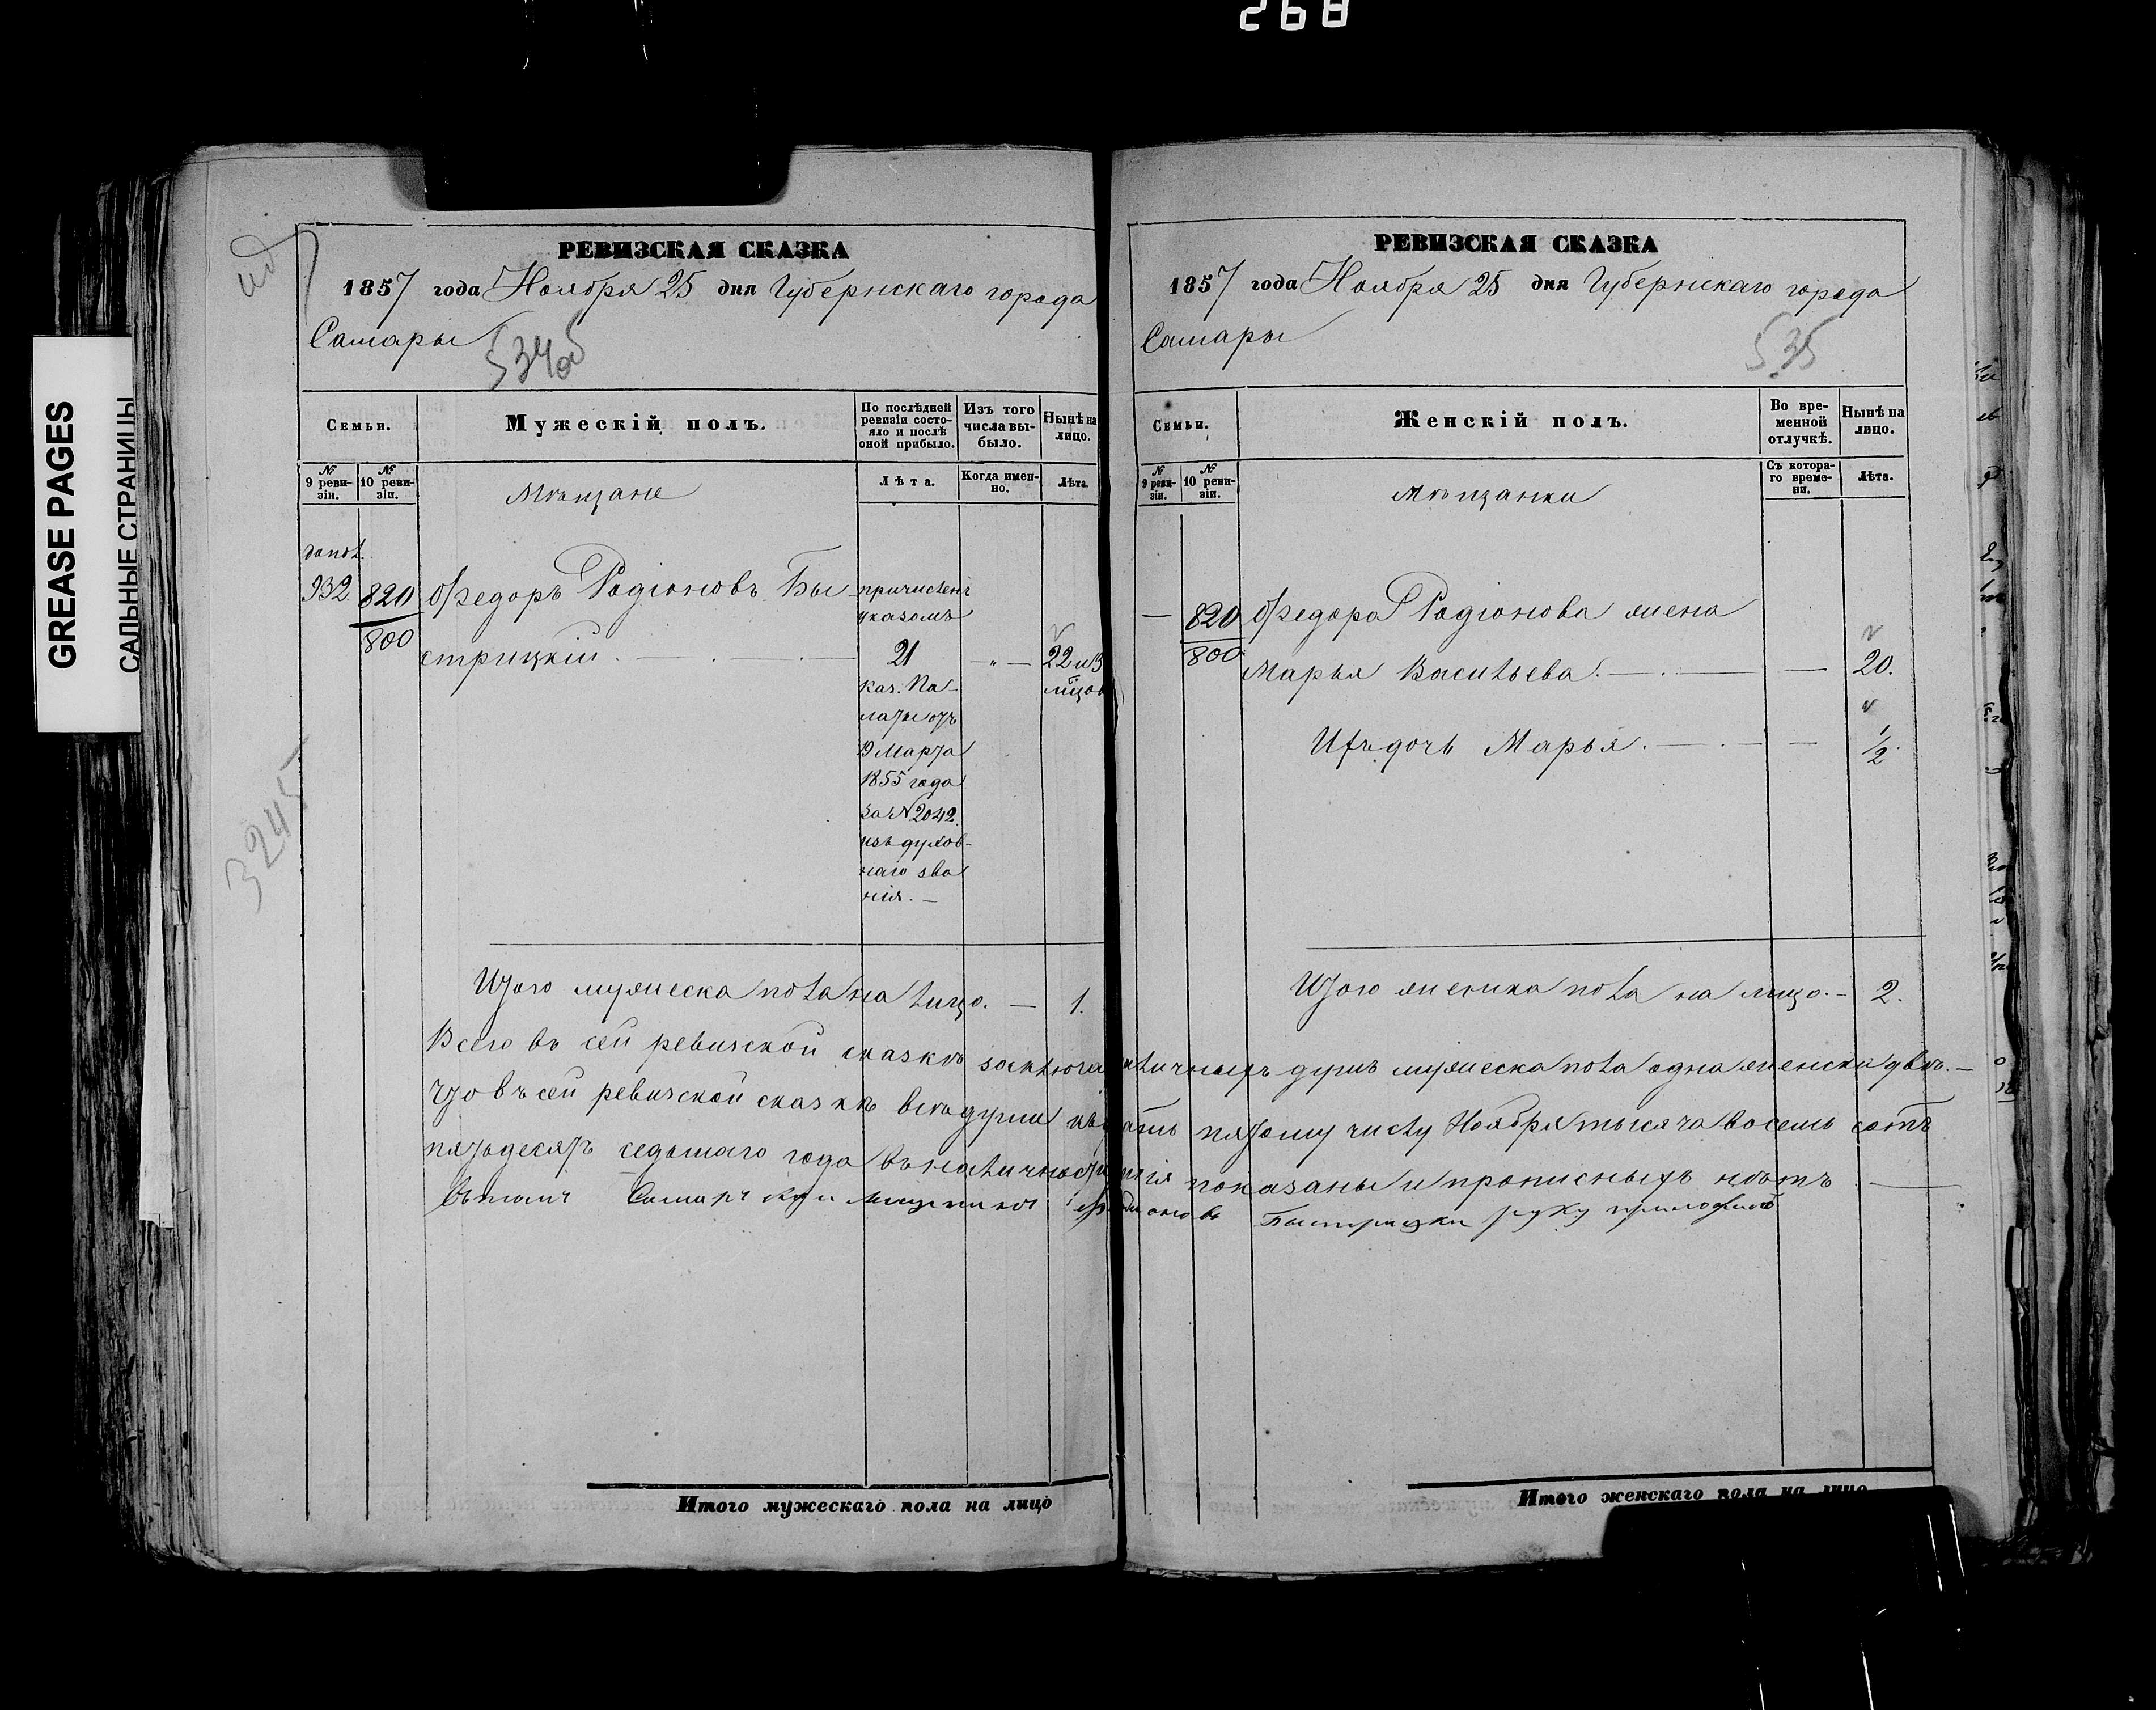 268
GREASE PAGES
САЛЬНЫЕ СТРАНИЦЫ
3245
РЕВИЗСКАЯ СКАЗКА
1857 года Ноября 25 дня Губернскаго города
Самары
534 об
Семьи.
Мужескій полъ.
По послѣдней ревизіи состояло и послѣ оной прибыло.
Изъ того числа выбыло.
Нынѣ на лицо.
№ 9 ревизіи.
№ 10 ревизіи.
Мѣщане
Лѣта.
Когда именно.
Лѣта.
допол.
932
820
800
Ѳедоръ Родіоновъ Бы-
стрицкій
причисленъ
указомъ
21
каз. Па-
латы отъ
19 Марта
1855 года
за № 2042.
изъ духов-
наго зва
нія. —
— „ —
22
Итого мужеска пола на лицо. — 1.
РЕВИЗСКАЯ СКАЗКА
1857 года Ноября 25 дня Губернскаго города
Самары
535
Семьи.
Женскій полъ.
Во временной отлучкѣ.
Нынѣ на лицо.
№ 9 ревизіи.
№ 10 ревизіи.
Мѣщанки
Съ котораго времени.
Лѣта.
— 820
800
Ѳедора Родіонова жена
Марья Васильева. — 20.
Ихъ дочь Марья. — 1/2.
Итого женска пола на лицо. — 2.
Всего въ сей ревизской сказкѣ наличныхъ душъ мужеска пола одна женска двѣ. —
Что въ сей ревизской сказкѣ всѣ души пятому числу Ноября тысяча восемь сотъ
пятьдесятъ седьмаго года въ наличности показаны и прописныхъ нѣтъ
въ томъ Самарский мещанинъ Быстрицкий руку приложилъ
Итого мужескаго пола на лицо
Итого женскаго пола на лицо